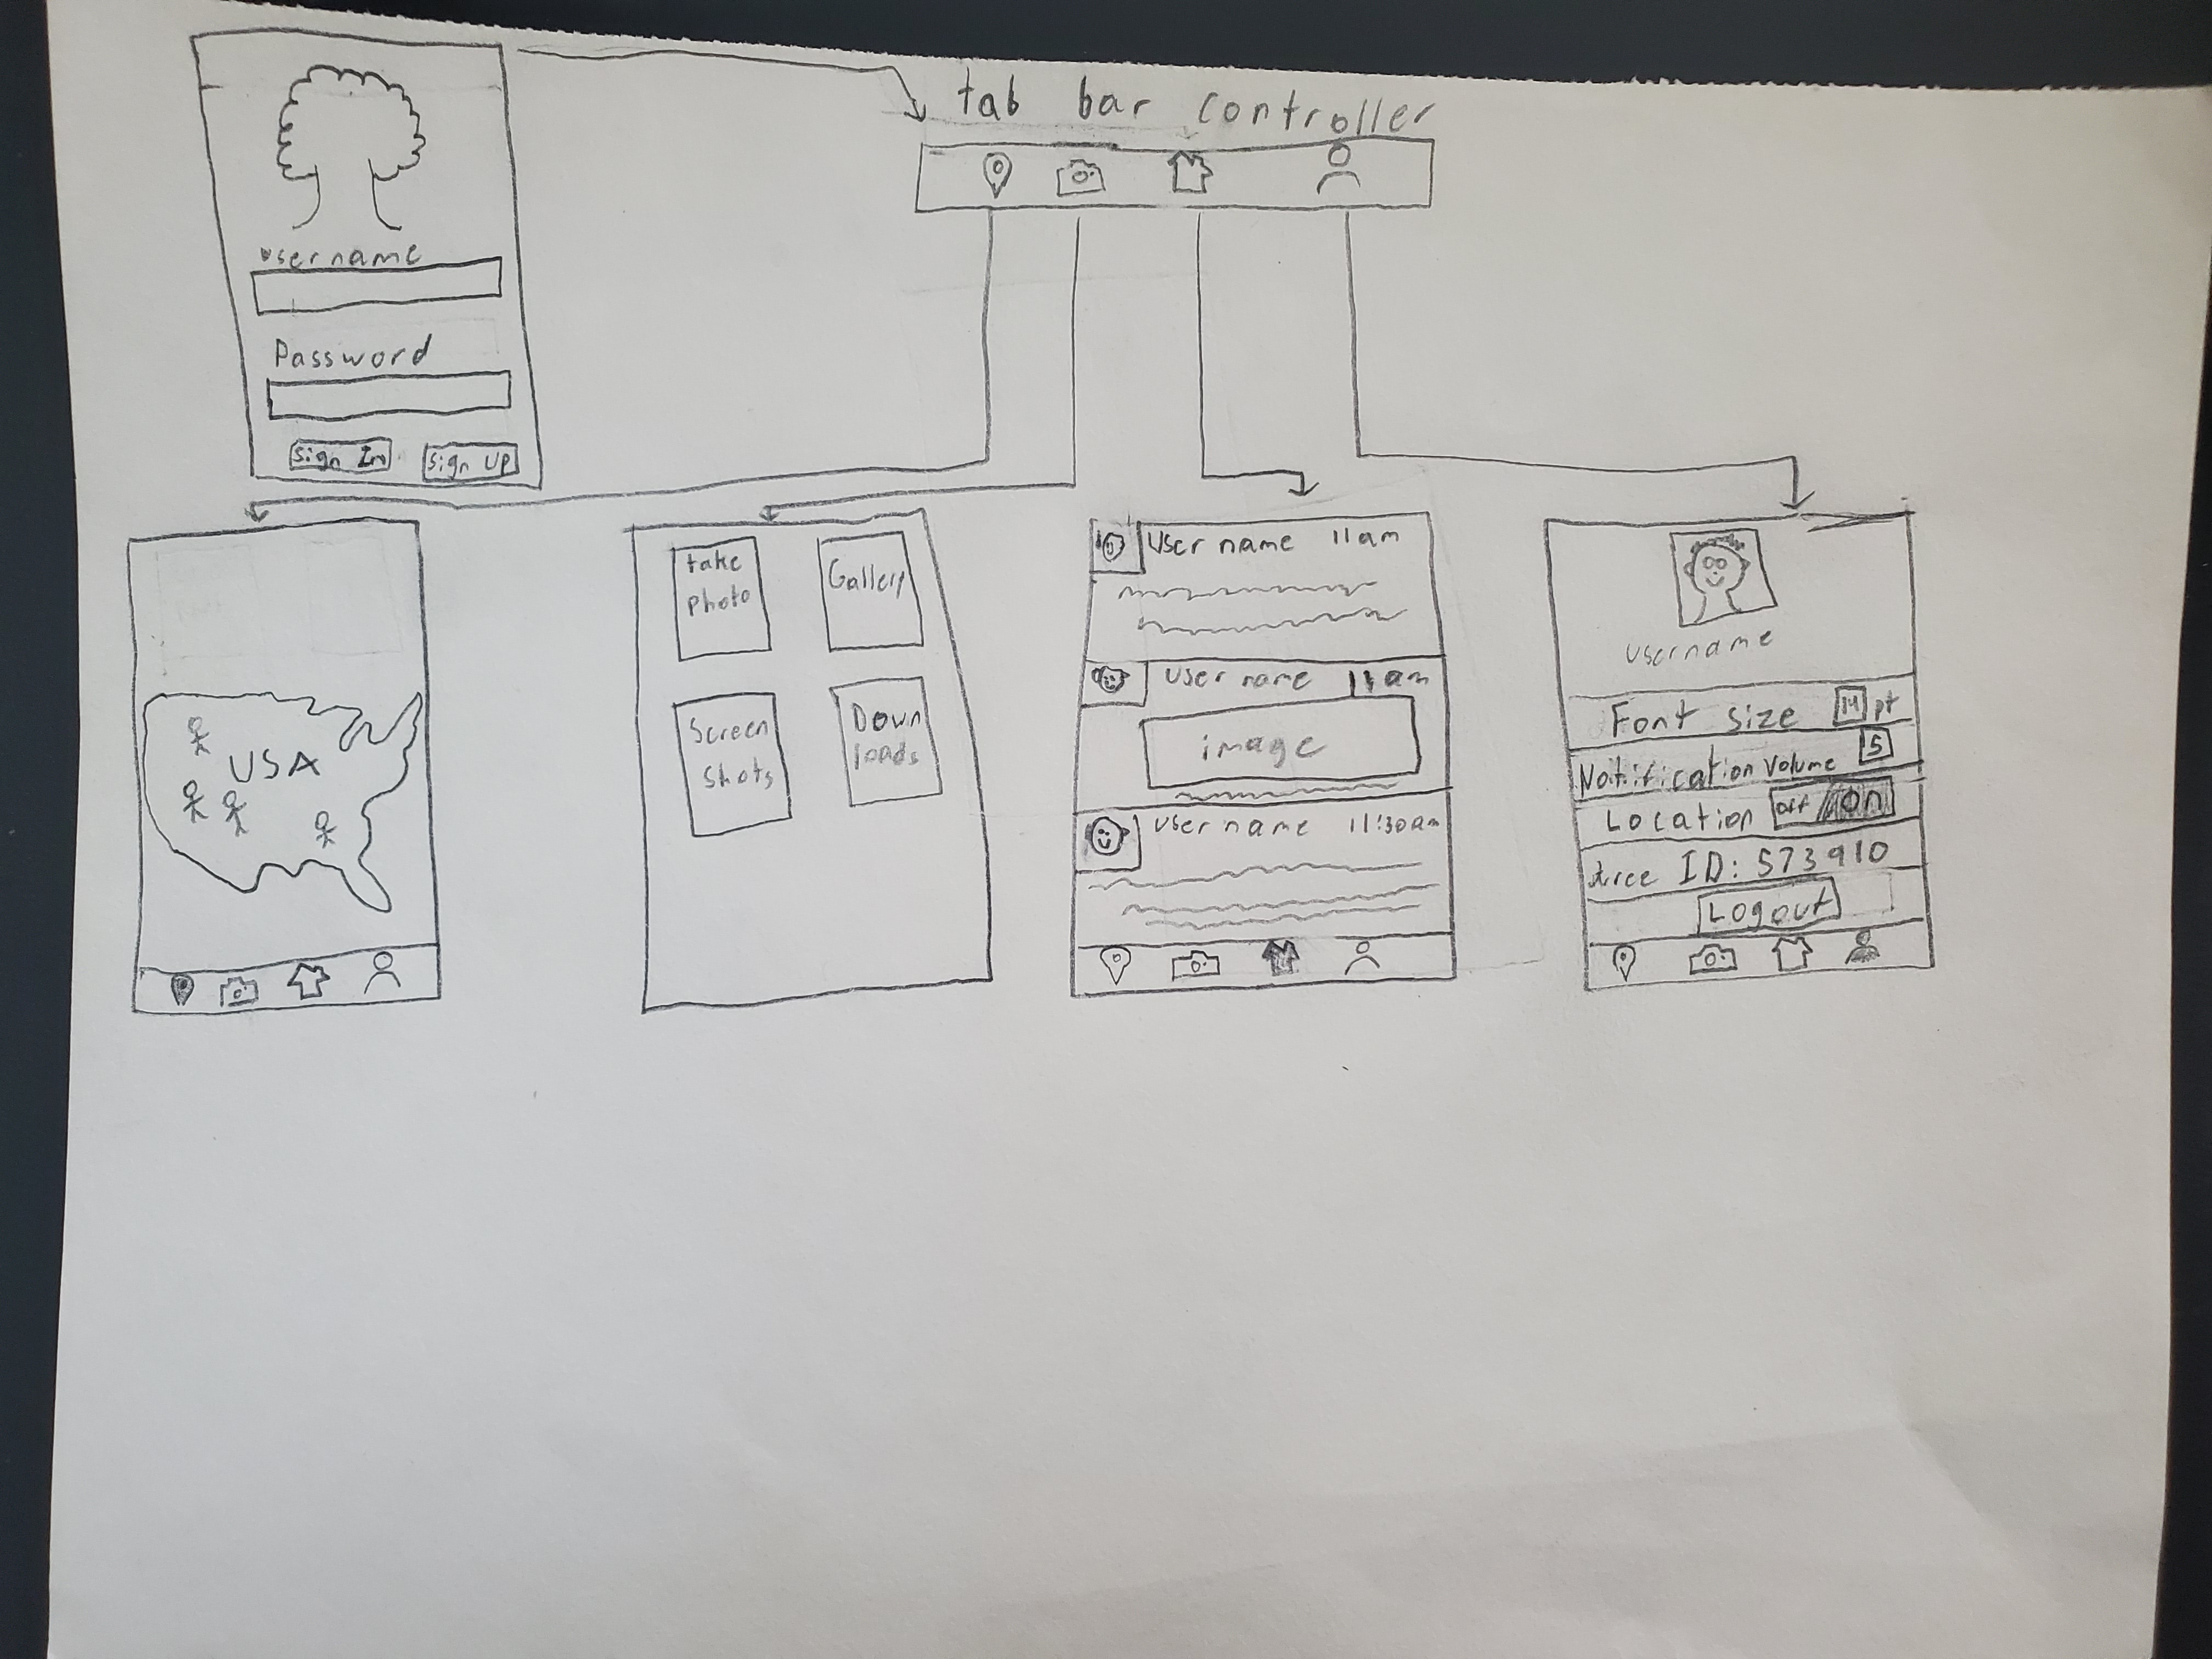 tab bar controller
username
Password
Sign In
Sign Up
USA
take
photo
Gallery
Screen
Shots
Down
loads
User name 11am
User name 11 am
image
User name 11:30am
Username
Font size pt
Notification Volume 5
Location off On
tree ID: 573910
Logout